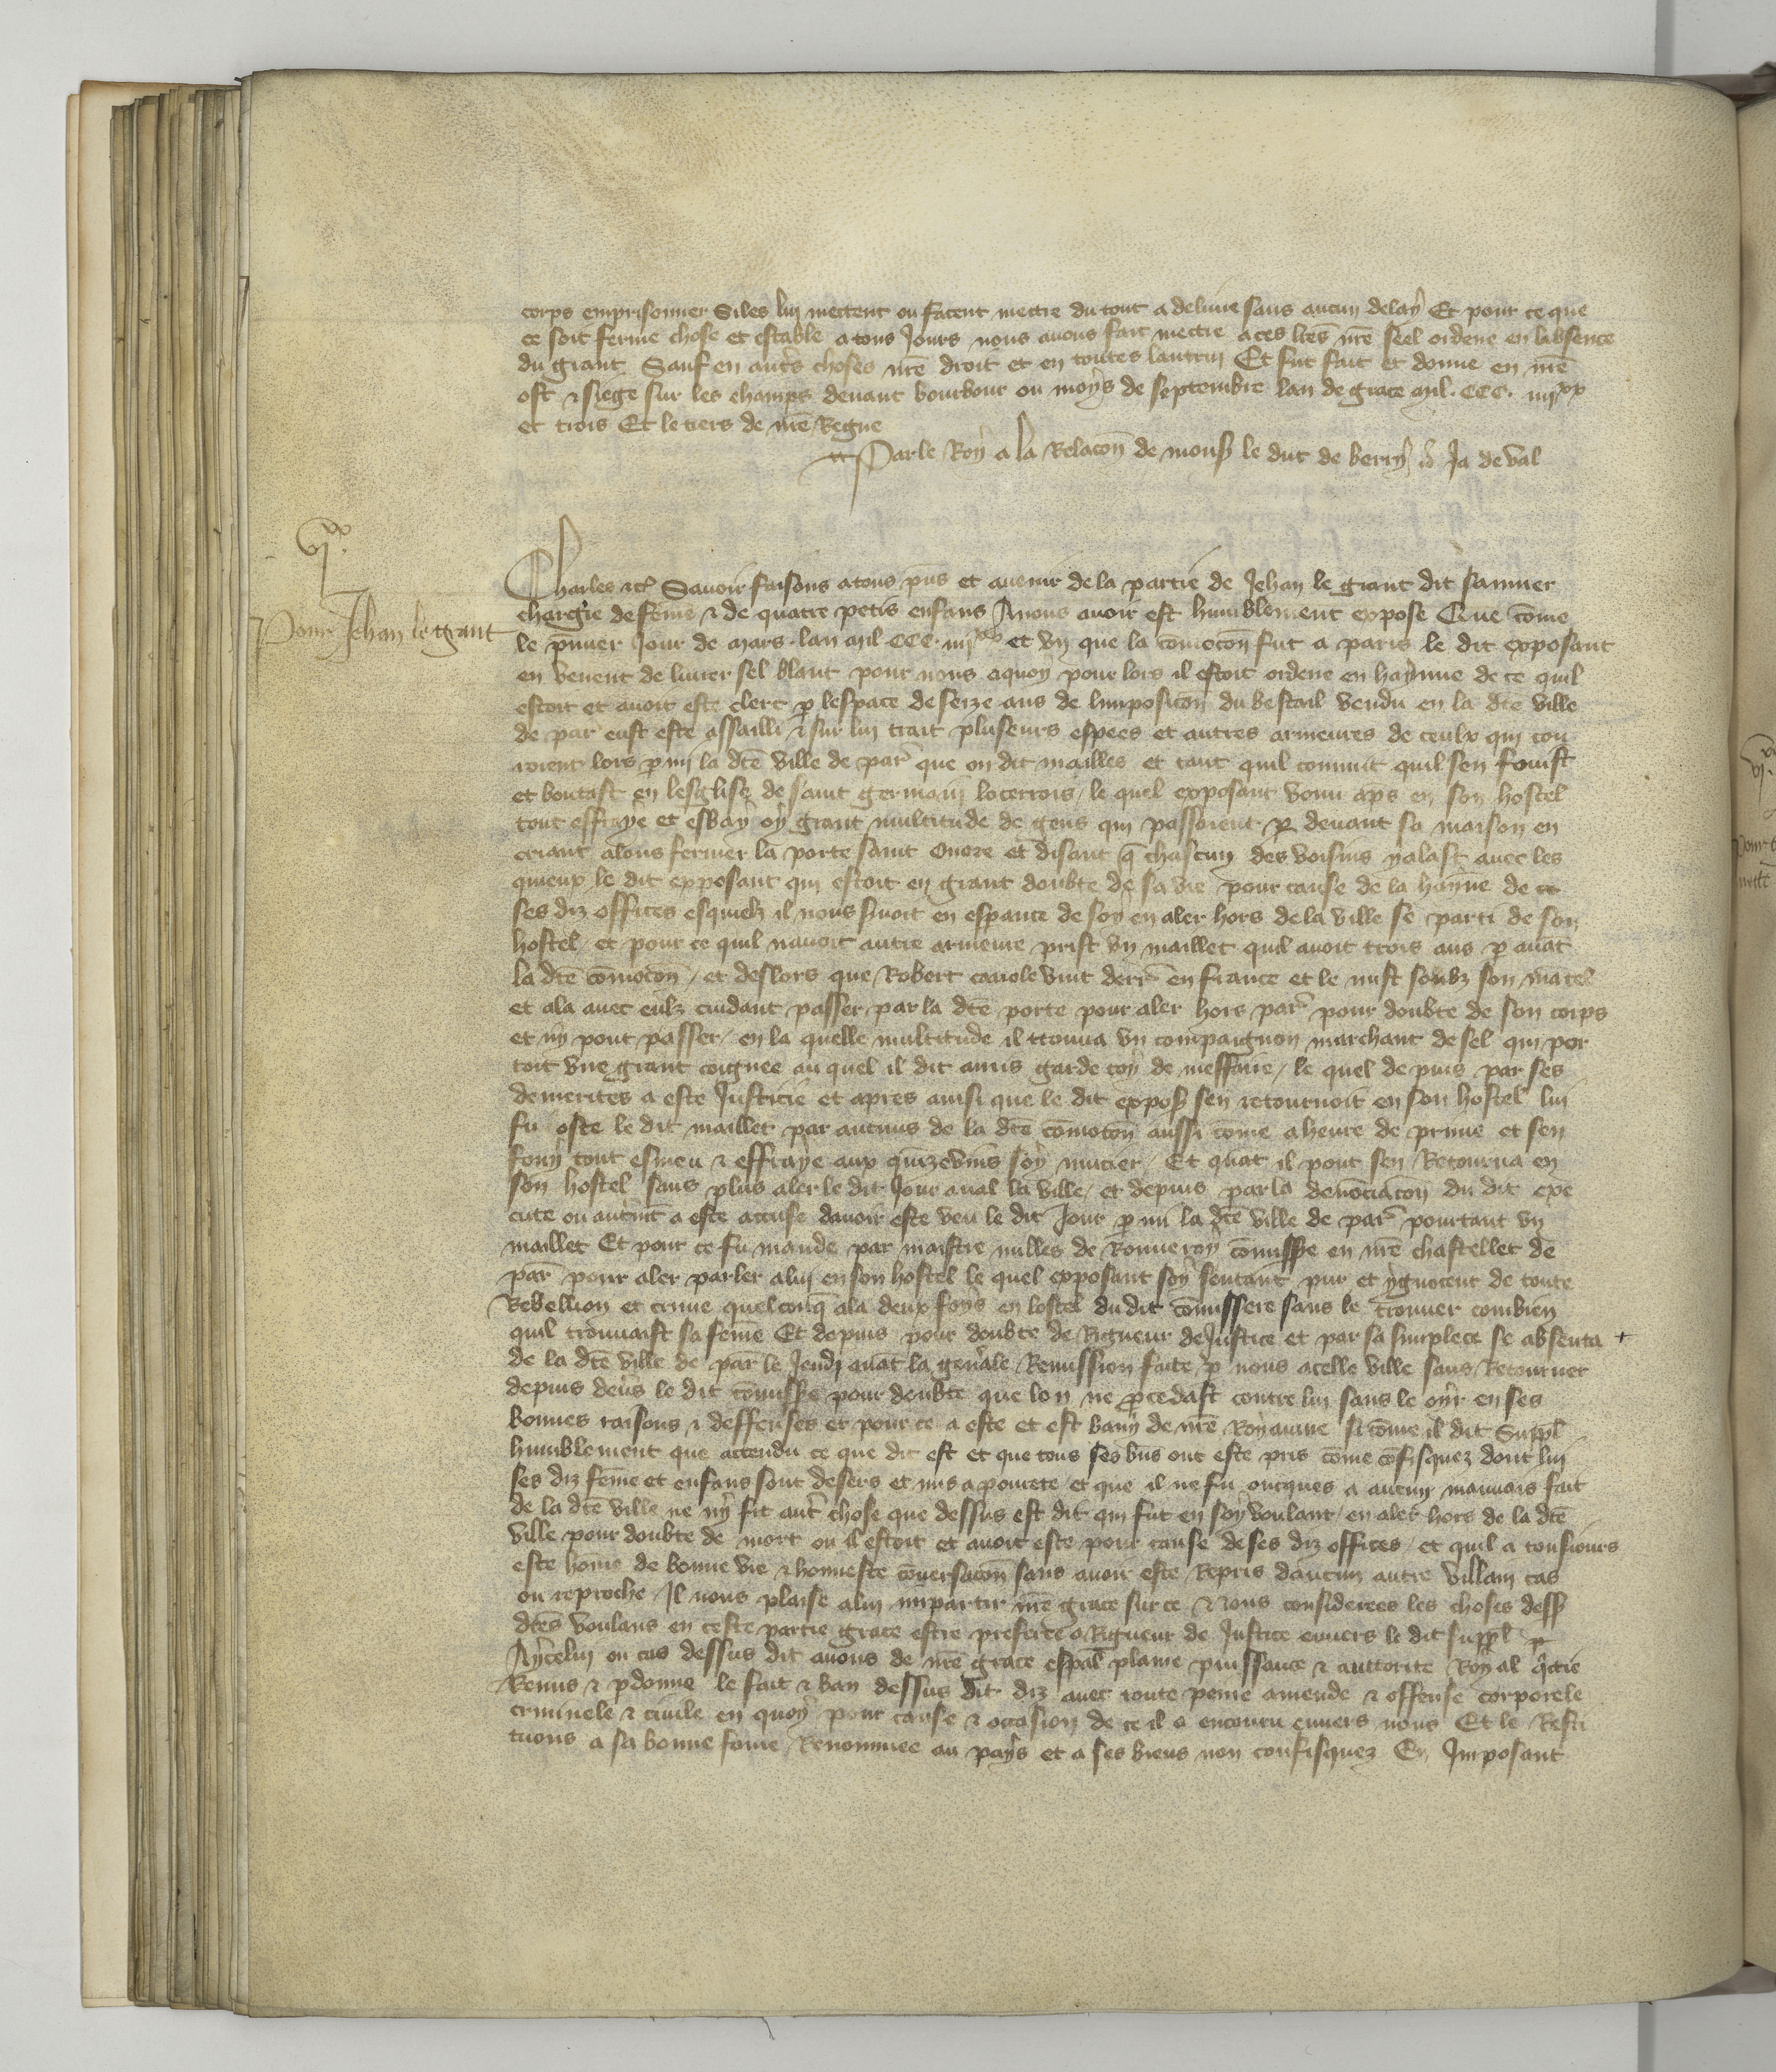 corps emprisonner Siles lui mectent ou facent mectre du tout a delivre sans aucun delay Et pour ce que
ce soit ferme chose et estable a tous Jours nous avons fait mectre a ces lres nre seel ordene en labsence
du grant Sauf en autres choses nre droit et en toutes lautrui Et fut fait et donne en nre
ost & siege sur les champs devant bourbour ou moys de septembre lan de grace mil. CCC. iiijxx
et trois Et le tiers de nre Regne
Par le Roy a la Relacon de mons le duc de berry Ja de val
vjxx
Pour Jehan le grant
Charles etc Savoir faisons a tous pns et avenir de la partie de Jehan le grant dit
chargie de feme & de quatre petis enfans A nous avoir est humblement expose Que come
le pmier Jour de mars lan mil CCC iiijxx et vn que la comocon fut a paris le dit exposant
en venent de livrer sel blanc pour nous a quoy pour lors il estoit ordene en haynne de ce quil
estoit et avoit este clerc p lespace de seize ans de limposicon du bestail vendu en la dte ville
de par eust este assailli & sur lui trait pluseurs espees et autres armeures de ceulx qui cou
roient lors pmi la dte ville de par que on dit mailles et tant quil convint quil sen fouist
et boutast en lesglise de saint germain locerrois le quel exposant venu aps en son hostel
tout effraye et esbay oy grant multitude de gens qui passoient p devant sa maison en
criant alons fermer la porte saint Onore et disant q chascun des voisins y alast avec les
quieux le dit exposant qui estoit en grant doubte de sa vie pour cause de la haynne de ce
ses diz offices esquielz il nous svoit en esperance de soy en aler hors de la ville se parti de son
hostel et pour ce quil navoit autre armeure prist vn maillet quil avoit trois ans p avat
la dte comocon et deslors que Robert canole vint derr en france et le mist soubz son mantel
et ala avec eulz cuidant passer par la dte porte pour aler hors par pour doubte de son corps
et ny pout passer en la quelle multitude il trouva vn compaignon marchant de sel qui por
toit vne grant coignee au quel il dit amis garde toy de meffaire le quel depuis par ses
demerites a este Justicie et apres ainsi que le dit expos sen retournoit en son hostel lui
fu oste le dit maillet par aucuns de la dte comocon aussi come a heure de prime et sen
fouy tout esmeu & effraye aux quizevins soy mucier Et quat il pout sen Retourna en
son hostel sans plus aler le dit Jour aval la ville et depuis par la denonciacon du dit exe
cute ou autmt a este accuse davoir este veu le dit Jour pmi la dte ville de par pourtant vn
maillet Et pour ce fu mande par maistre milles de Rouveroy comisse en nre chastellet de
par pour aler parler a lui en son hostel le quel exposant soy sentant pur et ygnocent de toute
Rebellion et crime quelconq ala deux foys en lostel du dit comissere sans le trouver combien
quil trouvast sa feme Et depuis pour doubte de Rigueur de Justice et par sa simplece se absenta +
de la dte ville de par le Jeudi avat la genale Remission faite p nous a celle ville sans Retourner
depuis devs le dit comisse pour doubte que lon ne pcedast contre lui sans le oyr en ses
bonnes raisons & deffenses et pour ce a este et est bany de nre Royaume si come il dit Suppl
humblement que attendu ce que dit est et que tous ses bns ont este pris come cofisquez dont lui
ses diz feme et enfans sont desers et mis a povrete et que il ne fu oncques a aucun mauvais fait
de la dte ville ne ny fit autr chose que dessus est dit qui fut en soy voulant en aler hors de la dte
ville pour doubte de mort ou il estoit et avoit este pour cause de ses diz offices et quil a tousiours
este home de bonne vie & honneste coversacon sans avoir este Repris daucun autre villain cas
ou reproche Il nous plaise a lui impartir nre grace sur ce & nous considerees les choses dess
dtes voulans en ceste partie grace estre preferee a Rigueur de Justice envers le dit suppl
A ycelui ou cas dessus dit avons de nre grace espal plaine puissance & auttorite Royal qctie
Remis & pdonne le fait & ban dessus dit diz avec toute peine amende & offense corporele
criminele & civile en quoy pour cause & occasion de ce il a encouru envers nous Et le Resti
tuons a sa bonne fame Renommee au pays et a ses biens non confisquez En Imposant